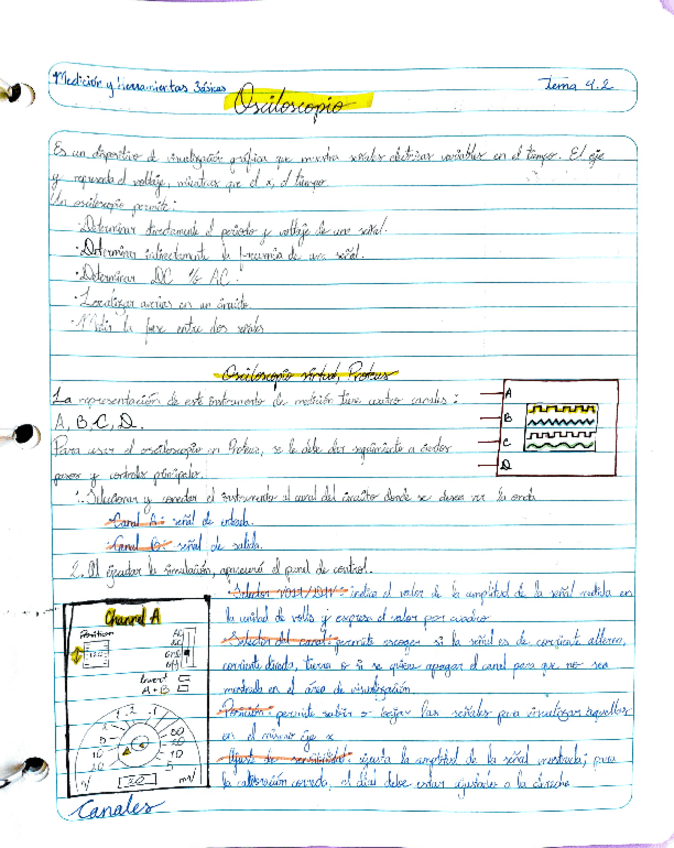 Medición y herramientas Básicas
Tema 4.2
Osciloscopio
Es un dispositivo de visualización gráfica que muestra señales eléctricas variables en el tiempo. El eje
y representa el voltaje, mientras que el x, el tiempo
Un osciloscopio permite:
·Determinar directamente el periodo y voltaje de una señal.
·Determinar indirectamente la frecuencia de una señal.
·Determinar DC % AC.
·Localizar averías en un circuito
·Medir la fase entre dos señales
Osciloscopio virtual, Proteus
La representación de este instrumento de medición tiene cuatro canales:
A, B, C, D.
A
B
C
D
Para usar el osciloscopio en Proteus, se le debe dar seguimiento a ciertos
pasos y controles principales.
1. Seleccionar y conectar el instrumento al canal del circuito donde se desea ver la onda
·Canal A: señal de entrada.
·Canal B: señal de salida.
2. Al ejecutar la simulación, aparecerá el panel de control.
·Selector VOLT/DIV: indica el valor de la amplitud de la señal medida en
la unidad de volts y expresa el valor por cuadro
·Selector del canal: permite escoger si la señal es de corriente alterna,
corriente directa, tierra o si se quiere apagar el canal para que no sea
mostrada en el área de visualización
·Posición: permite subir o bajar las señales para visualizar aquellas
en el mismo eje x
·Ajuste de sensibilidad: ajusta la amplitud de la señal mostrada; para
la calibración correcta, el dial debe estar ajustado a la derecha
Channel A
Position
AC
DC
GND
Off
Invert
A+B
.2 .1
1 50
20
10 10
20 5
V 20 mV
Canales